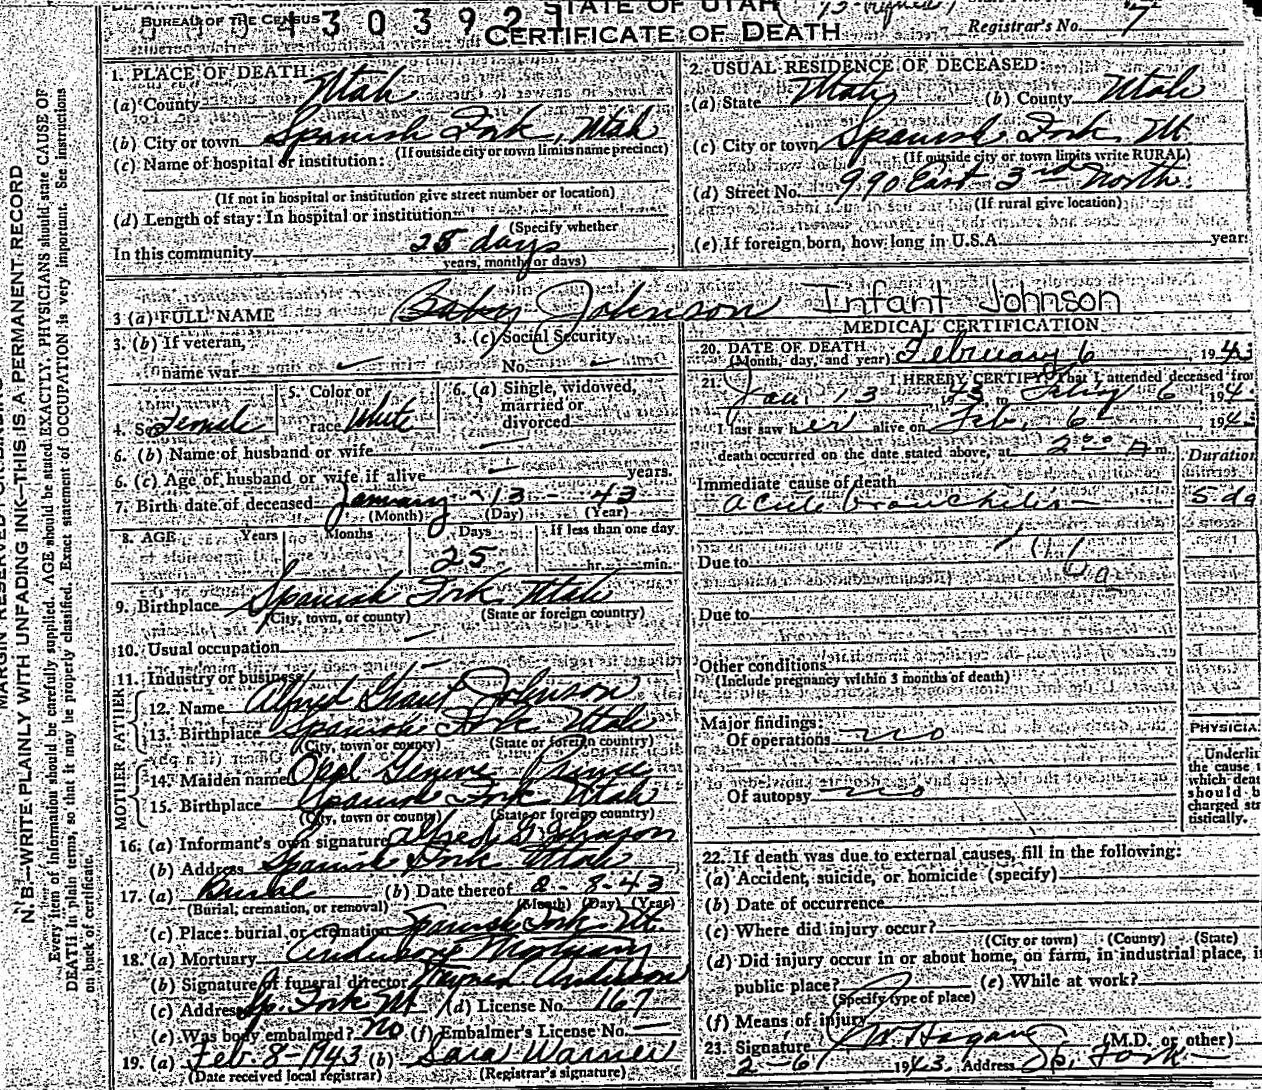 STATE OF UTAH
BUREAU OF THE CENSUS
303921
CERTIFICATE OF DEATH
Registrar's No. 7
1. PLACE OF DEATH:
(a) County Utah
(b) City or town Spanish Fork, Utah
(If outside city or town limits name precinct)
(c) Name of hospital or institution:
(If not in hospital or institution give street number or location)
(d) Length of stay: In hospital or institution
(Specify whether
In this community 25 days
years, month, or days)
2. USUAL RESIDENCE OF DECEASED:
(a) State Utah (b) County Utah
(c) City or town Spanish Fork, Ut
(If outside city or town limits write RURAL)
(d) Street No. 990 East 3rd North
(If rural give location)
(e) If foreign born, how long in U.S.A. years
3 (a) FULL NAME Baby Johnson Infant Johnson
3. (b) If veteran,
name war
3. (c) Social Security
No.
4. Sex Female
5. Color or
race White
6. (a) Single, widowed,
married or
divorced
6. (b) Name of husband or wife
6. (c) Age of husband or wife if alive years.
7. Birth date of deceased January - 13 - 43
(Month) (Day) (Year)
8. AGE Years Months Days If less than one day
25 hr. min.
9. Birthplace Spanish Fork Utah
(City, town, or county) (State or foreign country)
10. Usual occupation
11. Industry or business
FATHER
12. Name Alfred Grant Johnson
13. Birthplace Spanish Fork Utah
(City, town or county) (State or foreign country)
MOTHER
14. Maiden name Opal Geneve Prince
15. Birthplace Spanish Fork Utah
(City, town or county) (State or foreign country)
16. (a) Informant's own signature Alfred G Johnson
(b) Address Spanish Fork Utah
17. (a) Burial (b) Date thereof 2-8-43
(Burial, cremation, or removal) (Month) (Day) (Year)
(c) Place: burial or cremation Spanish Fork Ut.
18. (a) Mortuary Anderson Mortuary
(b) Signature of funeral director Anderson
(c) Address Sp. Fork Ut (d) License No. 167
(e) Was body embalmed? No (f) Embalmer's License No. —
19. (a) Feb. 8-1943 (b) Sara Warner
(Date received local registrar) (Registrar's signature)
MEDICAL CERTIFICATION
20. DATE OF DEATH
(Month, day, and year) February 6, 1943
21. I HEREBY CERTIFY, That I attended deceased from
Jan. 13 1943 to Feby 6 194
I last saw her alive on Feb. 6 194
death occurred on the date stated above, at 2:00 A m.
Duration
Immediate cause of death
acute bronchitis 5 da
Due to
Due to
Other conditions
(Include pregnancy within 3 months of death)
Major findings:
Of operations no
Of autopsy no
PHYSICIA
Underlin
the cause
which deat
should b
charged st
tistically.
22. If death was due to external causes, fill in the following:
(a) Accident, suicide, or homicide (specify)
(b) Date of occurrence
(c) Where did injury occur?
(City or town) (County) (State)
(d) Did injury occur in or about home, on farm, in industrial place, i
public place? (e) While at work?
(Specify type of place)
(f) Means of injury
23. Signature (M.D. or other)
2-6 1943. Address Sp. Fork
N. B.—WRITE PLAINLY WITH UNFADING INK—THIS IS A PERMANENT RECORD
Every item of information should be carefully supplied. AGE should be stated EXACTLY. PHYSICIANS should state CAUSE OF
DEATH in plain terms, so that it may be properly classified. Exact statement of OCCUPATION is very important. See instructions
on back of certificate.